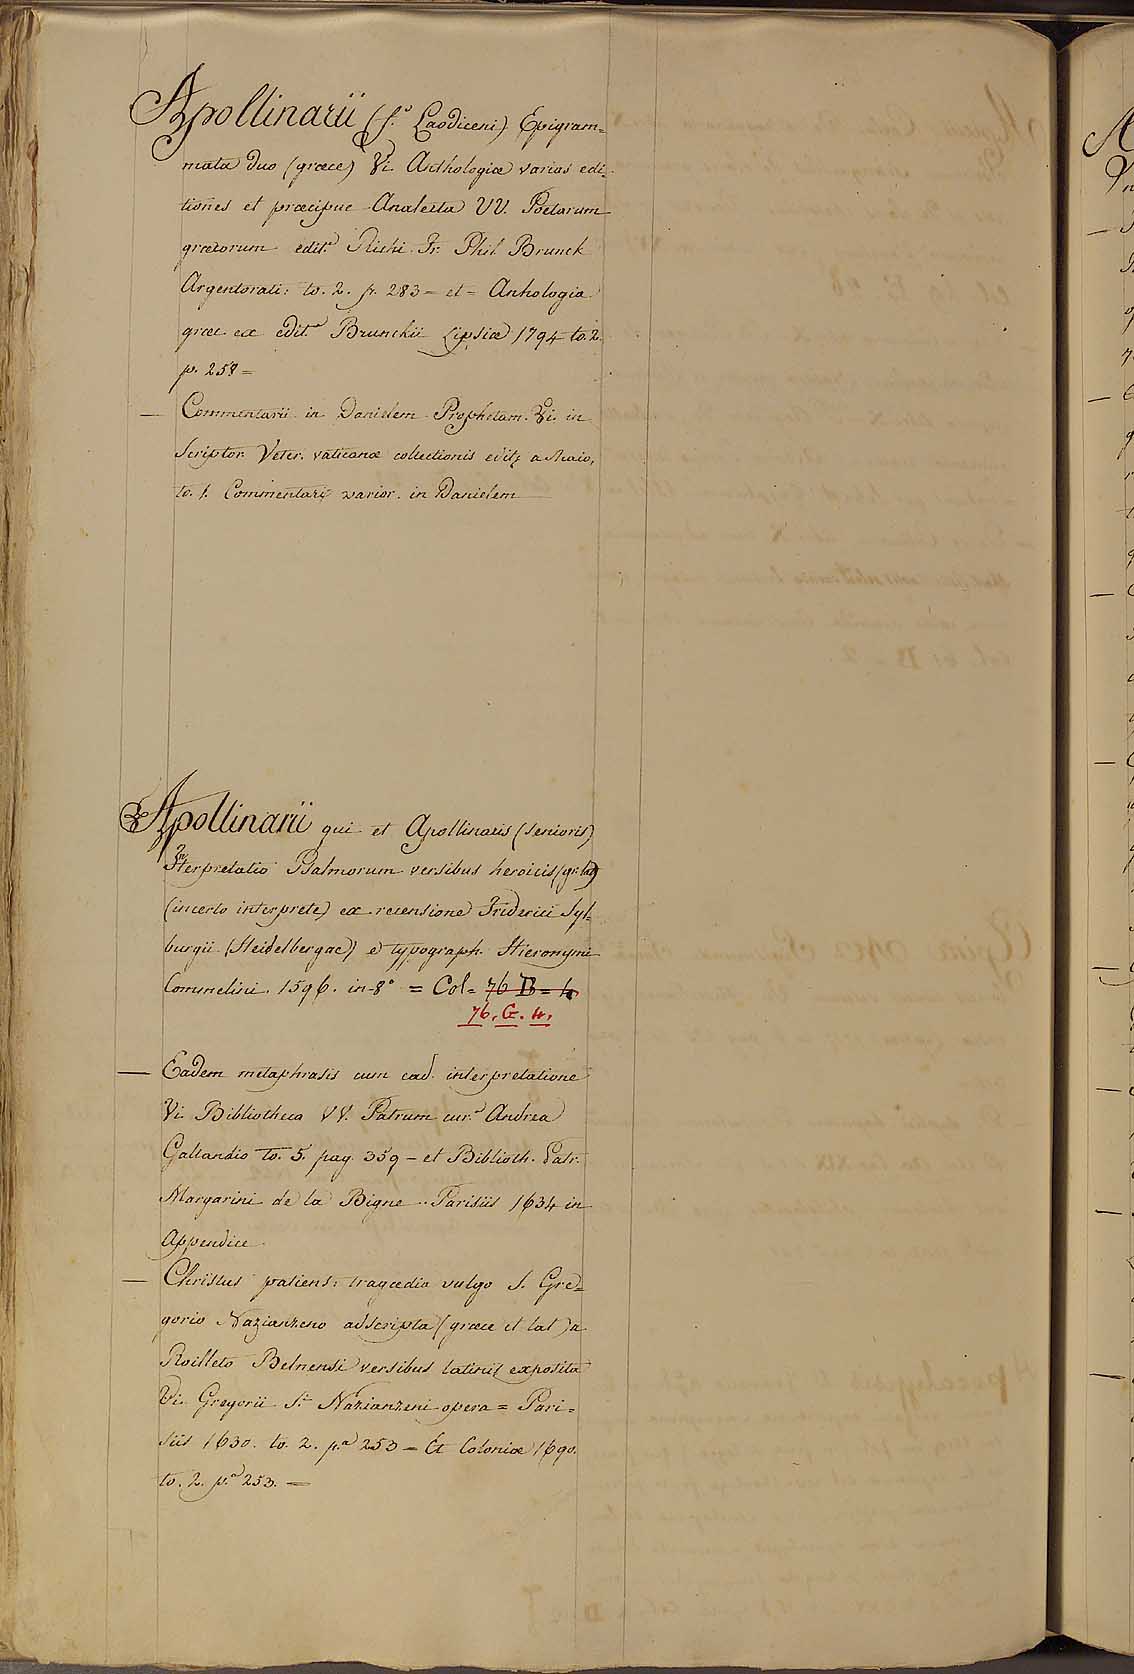 Apollinarii (S.i Laodiceni) Epigram=
mata duo (græce) Vi. Anthologiæ varias edi=
tiones et præcipue Analecta VV. Poetarum
græcorum edit.a Richi. Fr. Phil. Brunck
Argentorati: to. 2. p. 283 = et = Anthologia
græc ex edit.a Brunckii Lipsiæ 1794 to. 2.
p. 258 =
— Commentarii in Danielem Prophetam. Vi. in
Scriptor. Veter. vaticanæ collectionis edit. a Maio,
to. 1. Commentarii varior. in Danielem
Apollinarii qui et Apollinaris (senioris)
Interpretatio Psalmorum versibus heroicis (gr. lat)
(incerto interprete) ex recensione Friderici Syl=
burgii (Heidelbergae) e typograph. Hieronymi
Commelini. 1596. in-8° = Col= 76 B = 4
76. G. 4.
— Eadem metaphrasis cum ead. interpretatione
Vi. Bibliotheca VV. Patrum cur.a Andrea
Gallandio to. 5. pag. 359 – et Biblioth. Patr.
Margarini de la Bigne. Parisiis 1634 in
Appendice
— Christus patiens: tragœdia vulgo S. Gre=
gorio Nazianzeno adscripta (græce et lat) a
Roilleto Belnensi versibus latinis exposita
Vi. Gregorii S.i Nazianzeni opera = Pari=
siis 1630. to. 2. p.a 253 = Et Coloniæ 1690.
to. 2. p.a 253. =